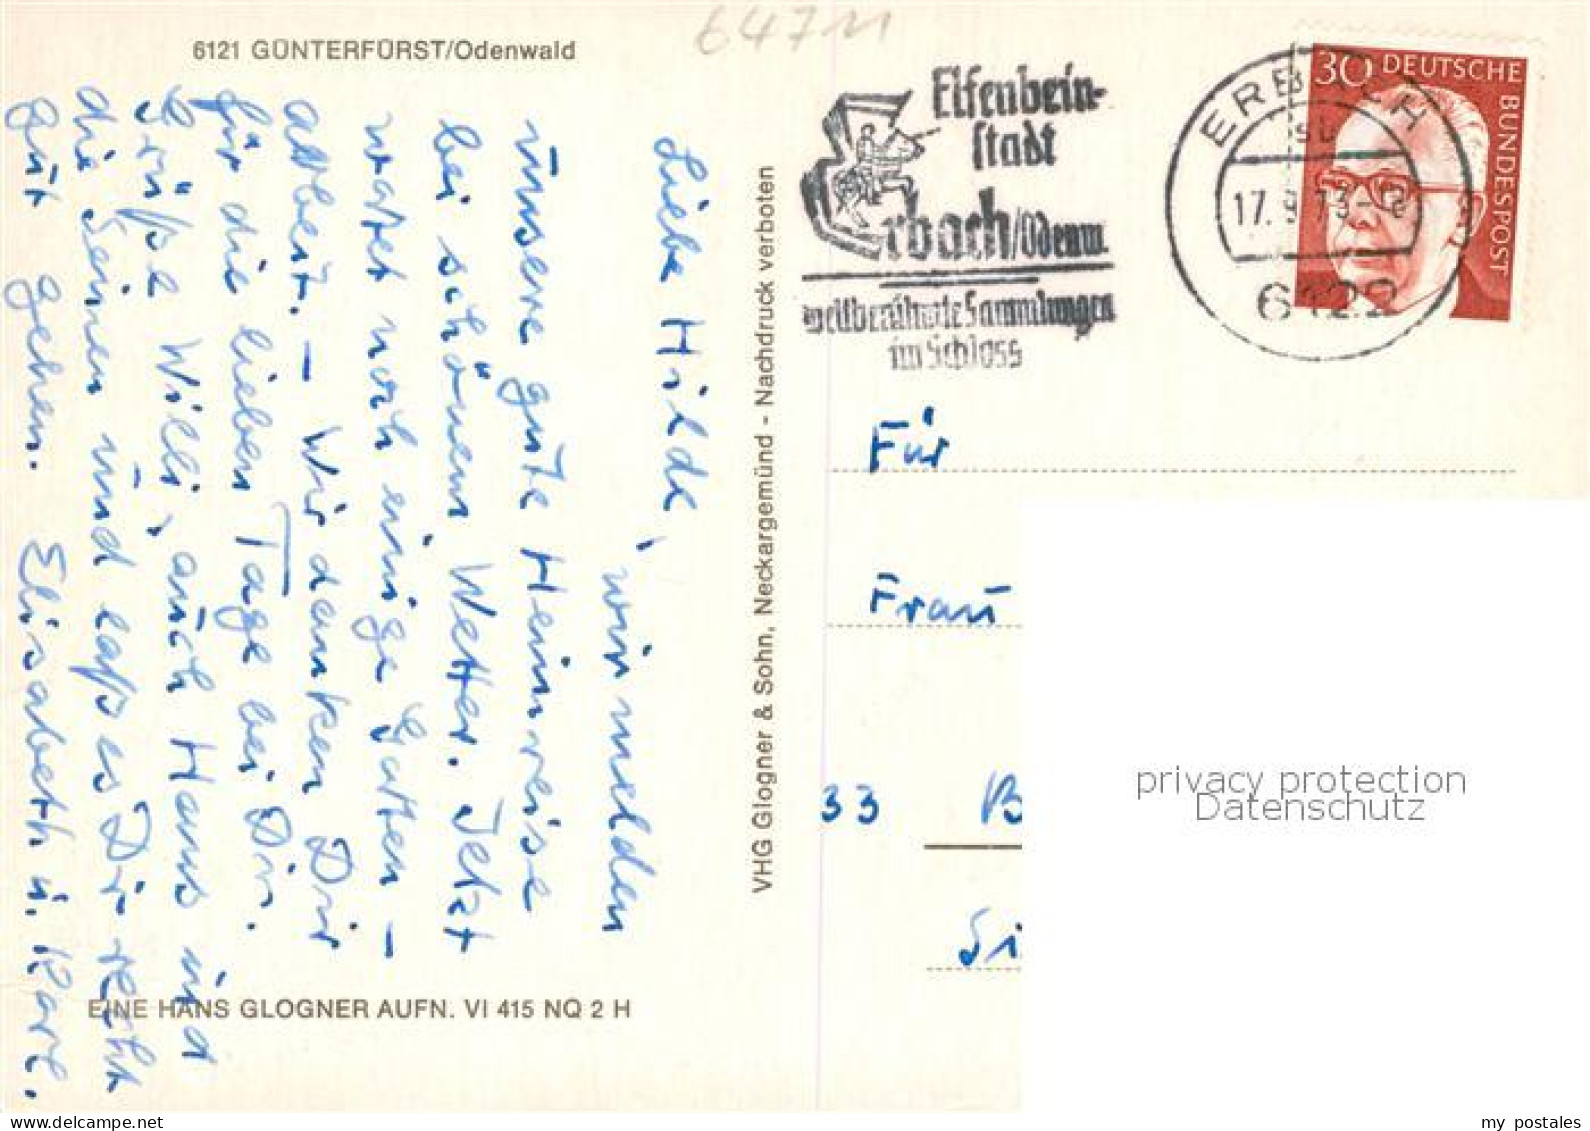 64711
6121 GÜNTERFÜRST/Odenwald
Liebe Hilde,
wir melden
unsere gute Heimreise
bei schönem Wetter. Jetzt
wartet noch einige Garten-
arbeit. - Wir danken Dir
für die lieben Tage bei Dir.
Grüße Willi, auch Hans und
die Seinen und laß es Dir recht
gut gehen. Elisabeth u. Karl.
EINE HANS GLOGNER AUFN. VI 415 NQ 2 H
VHG Glogner & Sohn, Neckargemünd - Nachdruck verboten
Elfenbein-
stadt
Erbach/Odenw.
weltberühmte Sammlungen
im Schloss
ERBACH
17. 9. 73
6122
30 DEUTSCHE
BUNDESPOST
Für
Frau
33 B
Si
privacy protection
Datenschutz
my postales